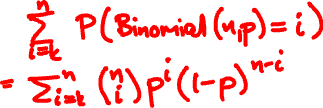 ∑_{i=k}^{n} P(Binomial(n,p)=i)
= ∑_{i=k}^{n} (n i) p^i (1-p)^{n-i}